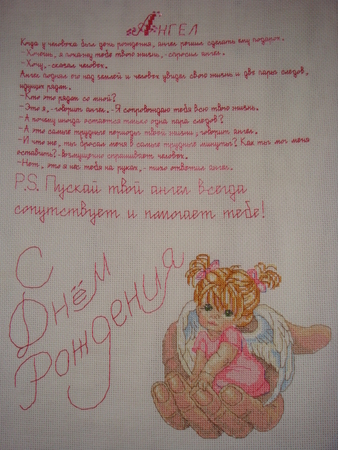 Ангел
Когда у человека был день рождения, ангел решил сделать ему подарок.
-Хочешь, я покажу тебе твою жизнь,-спросил ангел.
-Хочу,-сказал человек.
Ангел поднял его над землёй и человек увидел свою жизнь и две пары следов,
идущих рядом.
-Кто это рядом со мной?
-Это я,-говорит ангел,-Я сопровождаю тебя всю твою жизнь.
-А почему иногда остаётся только одна пара следов?
-А это самые трудные периоды твоей жизни,-говорит ангел.
-И что же, ты бросал меня в самые трудные минуты? Как ты мог меня
оставить?-возмущённо спрашивает человек.
-Нет, это я нёс тебя на руках,-тихо ответил ангел.
P.S. Пускай твой ангел всегда
сопутствует и помогает тебе!
С
Днём
Рождения